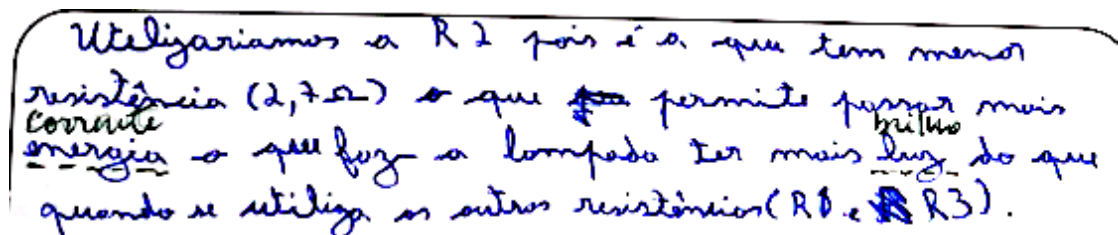 Utelizariamos a R2 pois é a que tem menor
resistência (2,7Ω) o que permite passar mais
corrente brilho
energia o que faz a lampada ter mais luz do que
quando se utiliza as outras resistências (R1 e R3).